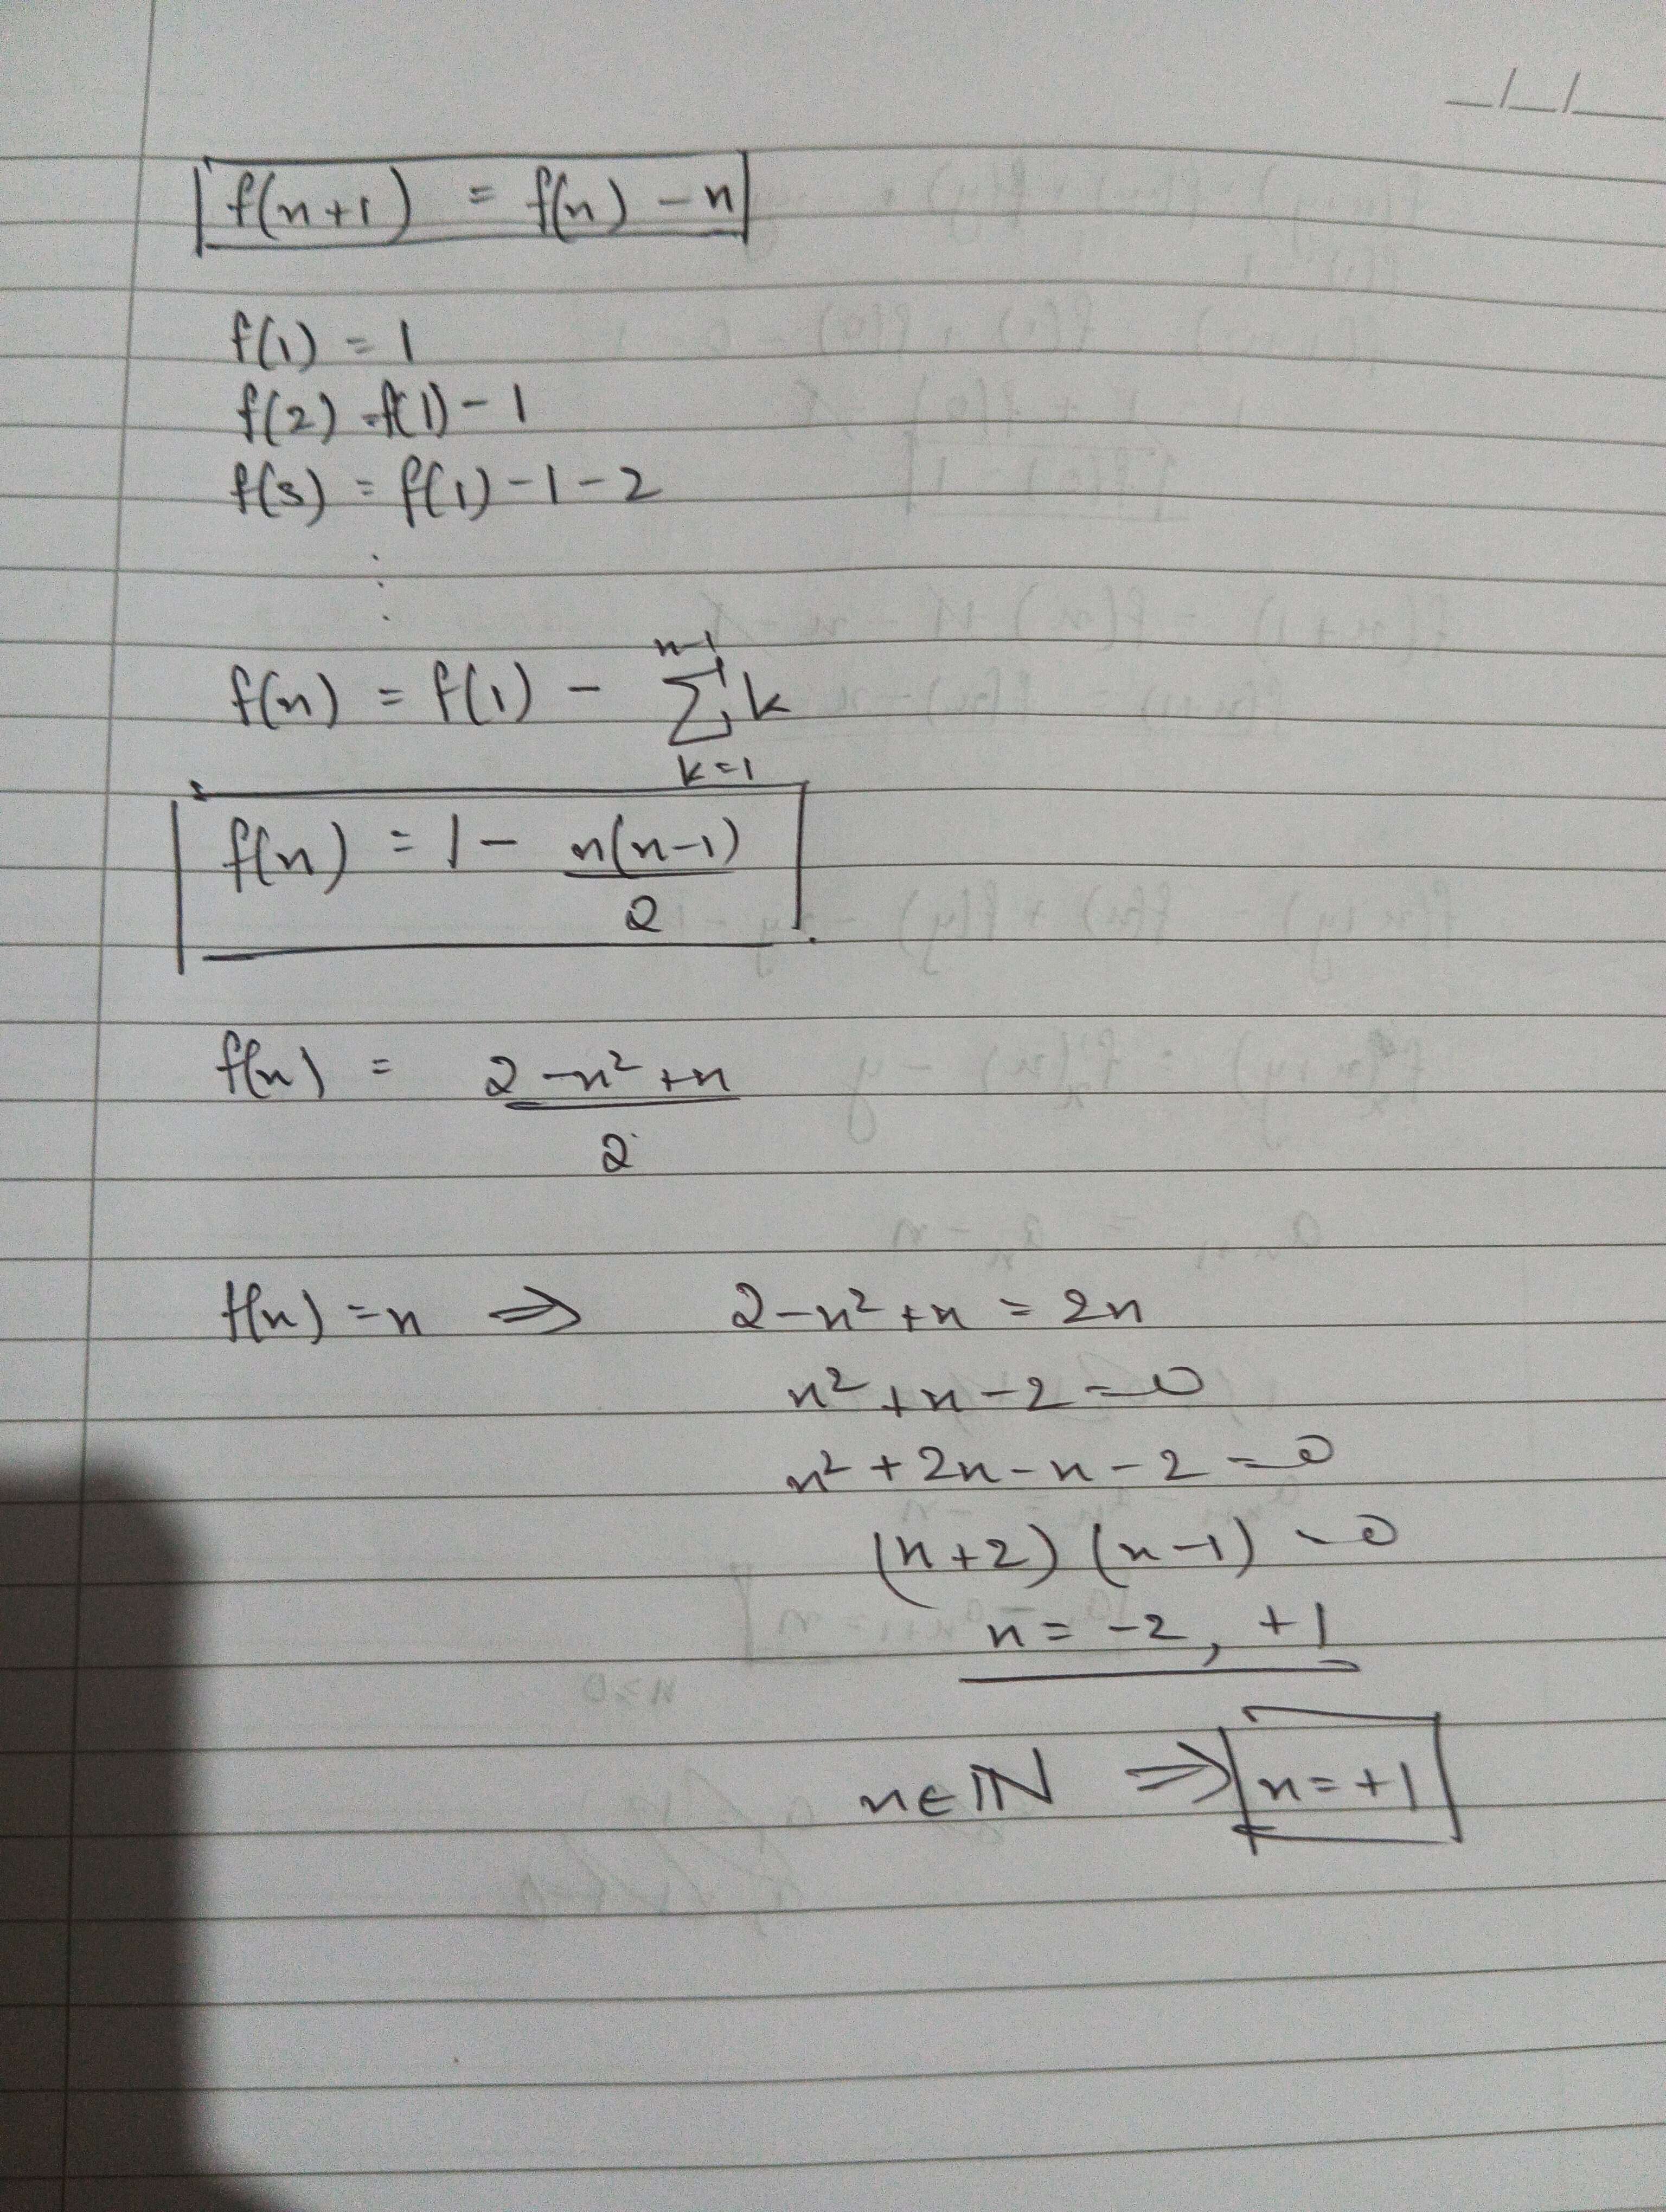 __/__/__
f(n+1) = f(n) - n
f(1) = 1
f(2) = f(1) - 1
f(3) = f(1) - 1 - 2
⋮
f(n) = f(1) - ∑_{k=1}^{n-1} k
f(n) = 1 - n(n-1)/2
f(n) = (2 - n² + n)/2
f(n) = n ⇒ 2 - n² + n = 2n
n² + n - 2 = 0
n² + 2n - n - 2 = 0
(n+2) (n-1) = 0
n = -2, +1
n ∈ ℕ ⇒ n = +1